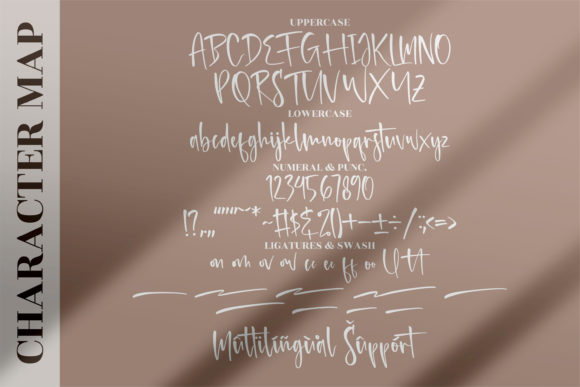 CHARACTER MAP
UPPERCASE
ABCDEFGHIJKLMNO
PQRSTUVWXYZ
LOWERCASE
abcdefghijklmnopqrstuvwxyz
NUMERAL & PUNC.
1234567890
LIGATURES & SWASH
on oh ov ow cc ee ff oo
Múltìlíngùál Šûppórt